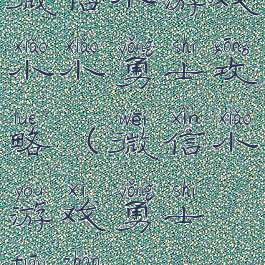 微信小游戏
xiǎo xiǎo yǒng shì gōng
小小勇士攻
lüè wēi xìn xiǎo
略（微信小
yóu xì yǒng shì
游戏勇士